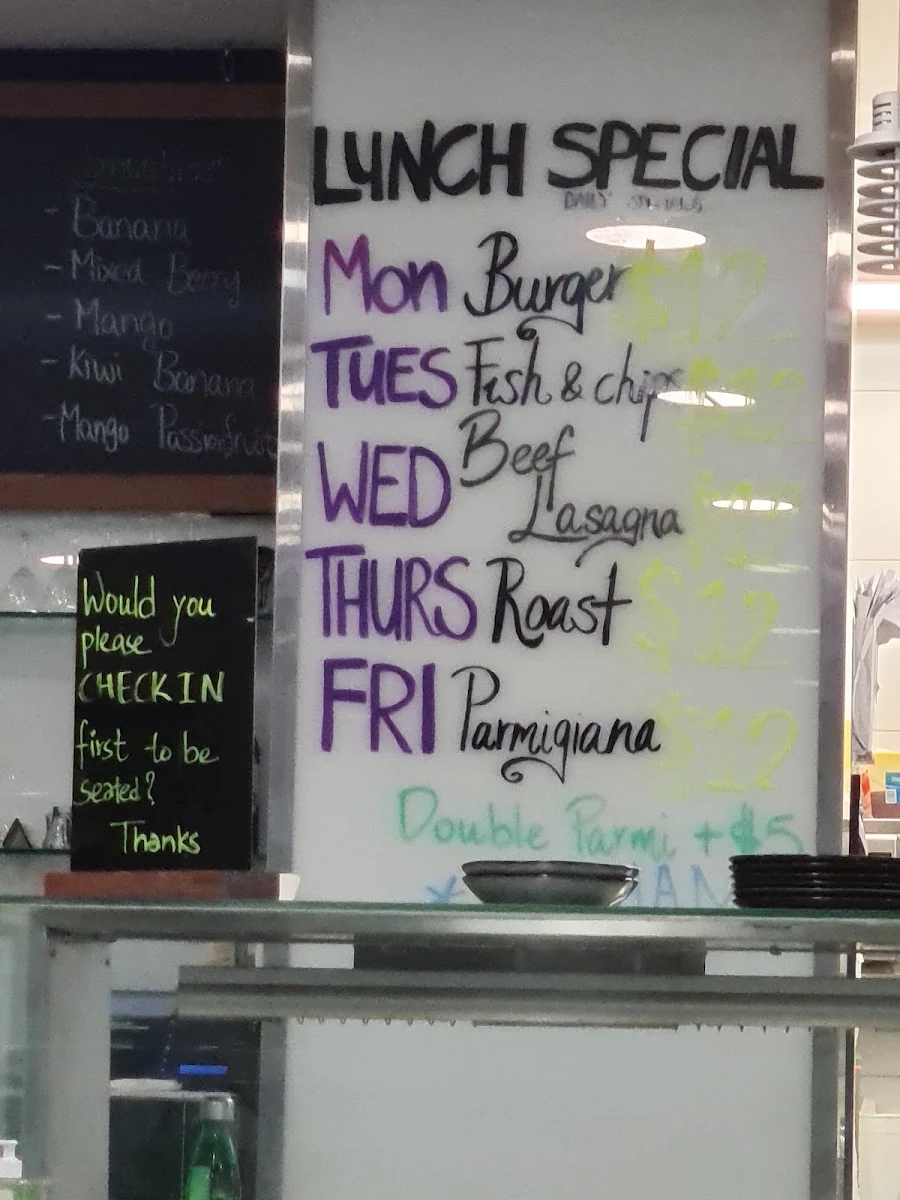 - Banana
- Mixed Berry
- Mango
- Kiwi Banana
- Mango Passionfruit
Would you
please
CHECK IN
first to be
seated?
Thanks
LUNCH SPECIAL
DAILY
Mon Burger $12
TUES Fish & chips $12
WED Beef
Lasagna $12
THURS Roast $12
FRI Parmigiana $12
Double Parmi + $5